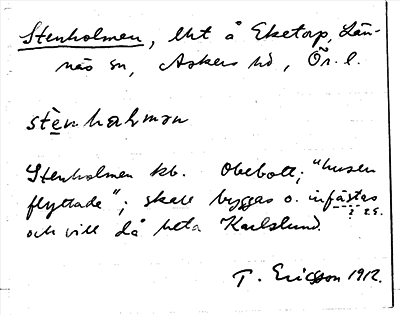 Stenholmen, lht å Eketorp, Län-
näs sn, Askers hd, Ör. l.
stènhålmən
Stenholmen kb. Obebott; "husen
flyttade"; skall byggas o. infästas
? t.s.
och vill då heta Karlslund.
T. Ericsson 1912.